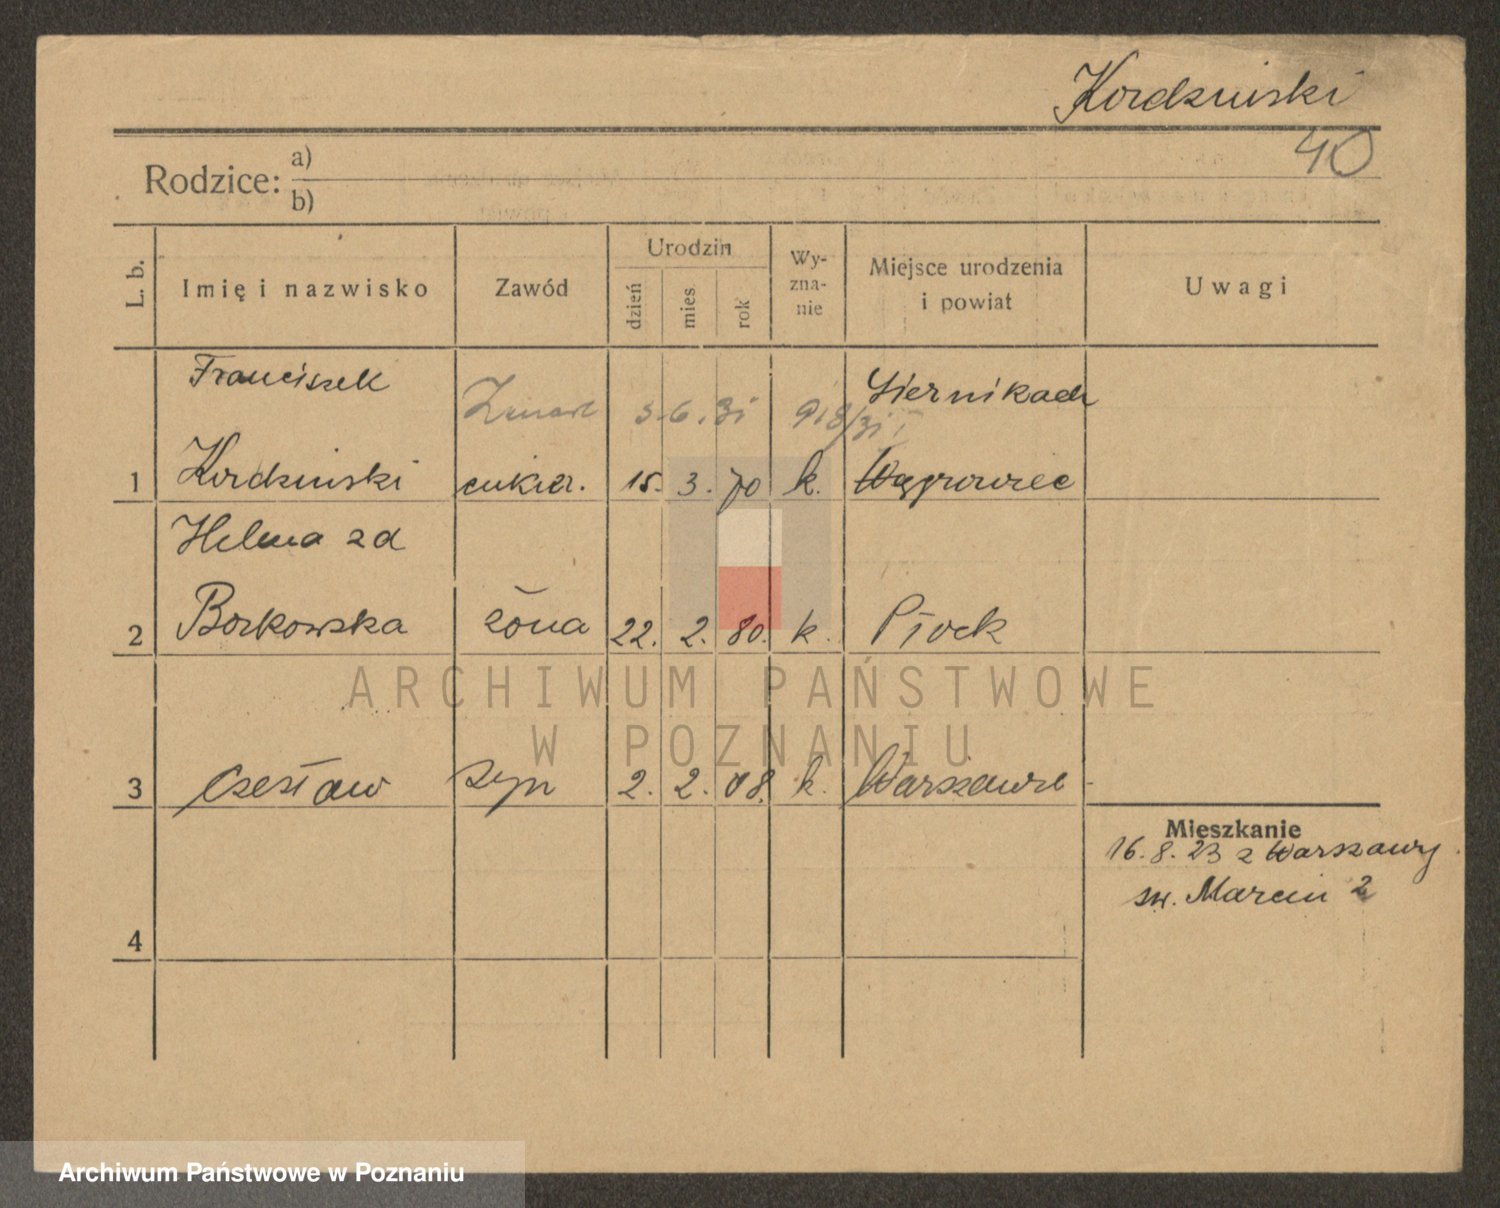 Kordziński
40
Rodzice: a)
b)
L. b.
Imię i nazwisko
Zawód
Urodzin
dzień
mies
rok
Wy-
zna-
nie
Miejsce urodzenia
i powiat
Uwagi
Franciszek
Siernikach
Zmarł 3.6.31 918/31
1 Kordziński cukier. 15. 3. 70 k. Wągrowiec
Helena zd
2 Borkowska żona 22. 2. 80. k. Płock
ARCHIWUM PAŃSTWOWE
W POZNANIU
3 Czesław syn 2. 2. 08. k. Warszawie
Mieszkanie
16.8.23 z Warszawy
św. Marcin 2
4
Archiwum Państwowe w Poznaniu